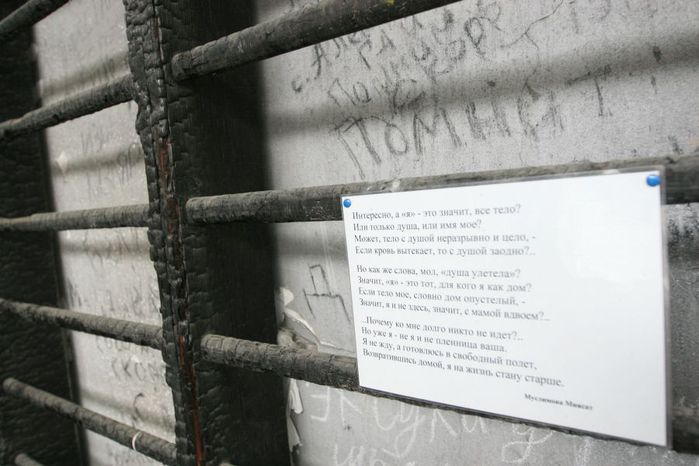 Помнит
Интересно, а «я» - это значит, все тело?
Или только душа, или имя мое?
Может, тело с душой неразрывно и цело, -
Если кровь вытекает, то с душой заодно?..
Но как же слова, мол, «душа улетела»?
Значит, «я» - это тот, для кого я как дом?
Если тело мое, словно дом опустелый, -
Значит, я и не здесь, значит, с мамой вдвоем?..
..Почему ко мне долго никто не идет?..
Но уже я - не я и не пленница ваша.
Я не жду, а готовлюсь в свободный полет,
Возвратившись домой, я на жизнь стану старше.
Муслимова Миясат